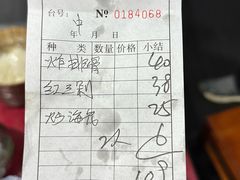 台号: 中 № 0184068
年 月 日
种 类 数量 价格 小结
炸排骨 60
红三剁 38
炒海 25
2人 6